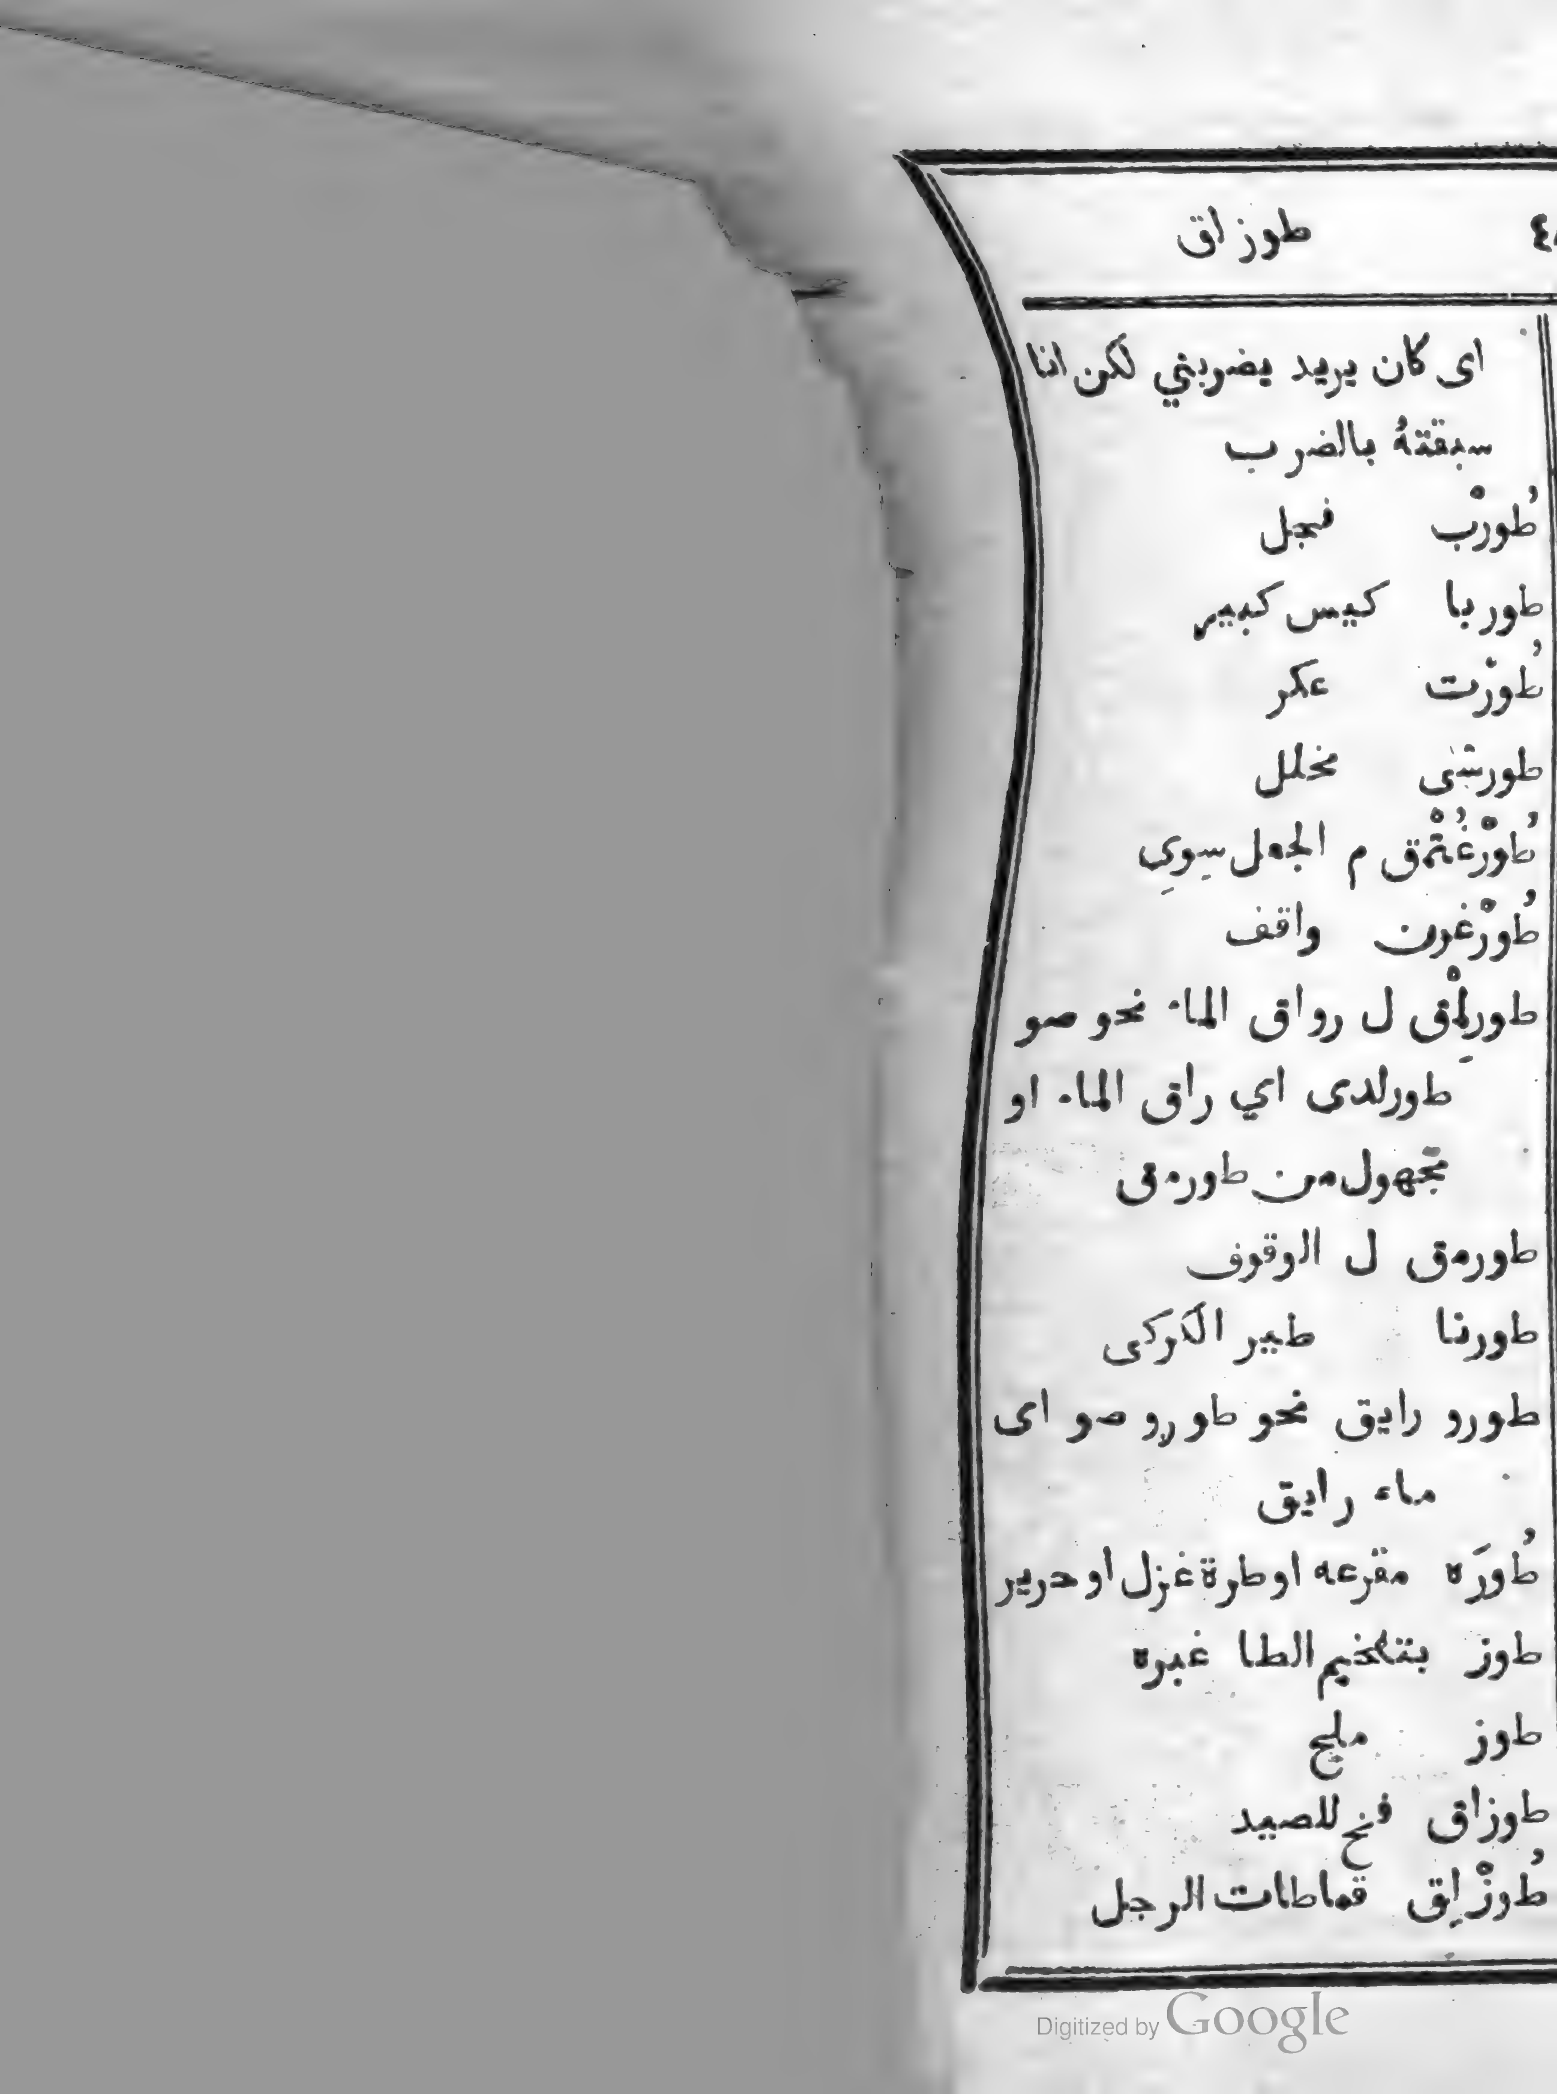 طوز لق
اى كان يريد يضربني لكن انا
سبقتهُ بالضرب
طُورْب فجل
طوربا كيس كبير
طُورْت عكر
طورشى مخلل
طُوْرْغُتْمق م الجعل سوي
طُورْغون واقف
طورِلْمق ل رواق الماء نحو صو
طورلدى اي راق الماء او
مجهول من طورمق
طورمق ل الوقوف
طورنا طير الكركى
طورو رايق نحو طورو صو اى
ماء رايق
طُورَه مقرعه او طرة غزل او حرير
طوز بتفخيم الطا غبره
طوز مليح
طوزاق فخ للصيد
طُوزْلِق قماطات الرجل
Digitized by Google